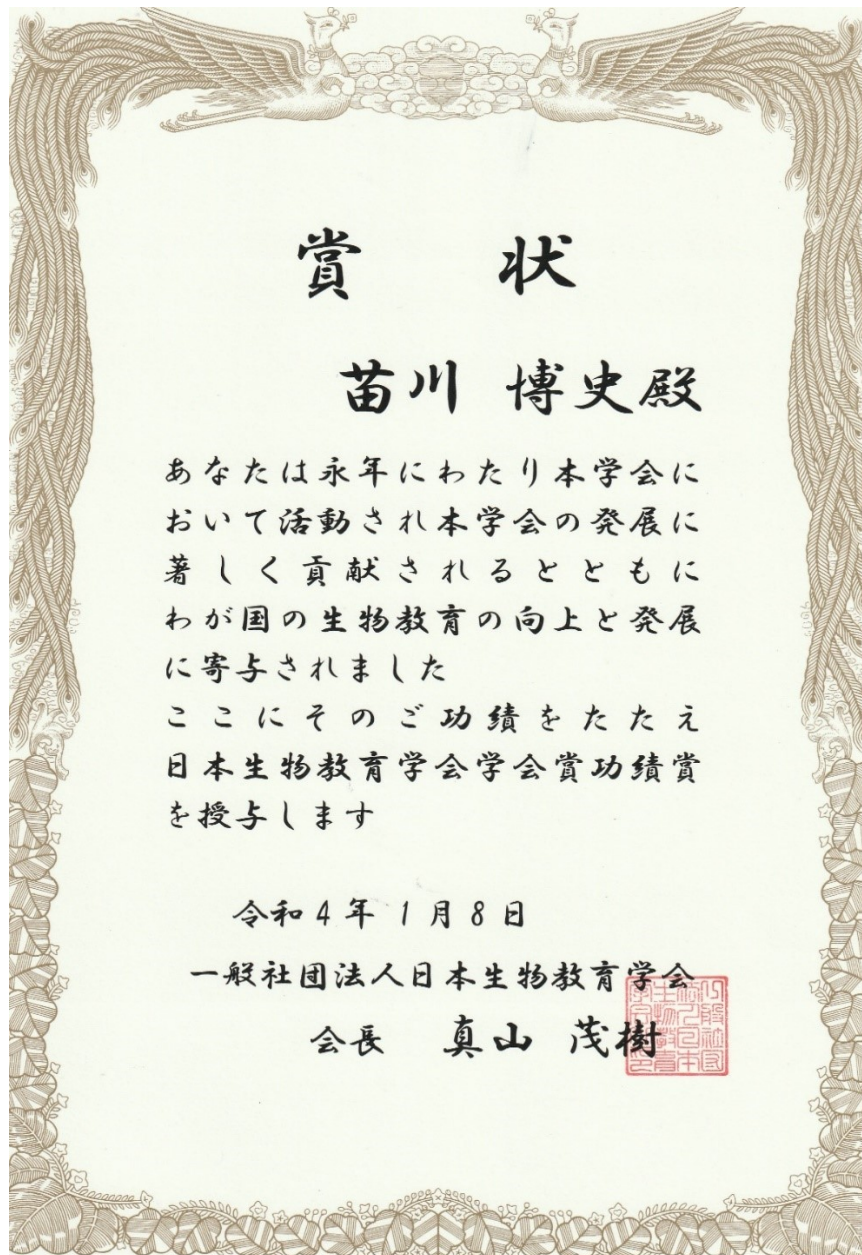 賞状
苗川 博史殿
あなたは永年にわたり本学会に
おいて活動され本学会の発展に
著しく貢献されるとともに
わが国の生物教育の向上と発展
に寄与されました
ここにそのご功績をたたえ
日本生物教育学会学会賞功績賞
を授与します
令和4年1月8日
一般社団法人日本生物教育学会
会長 真山 茂樹